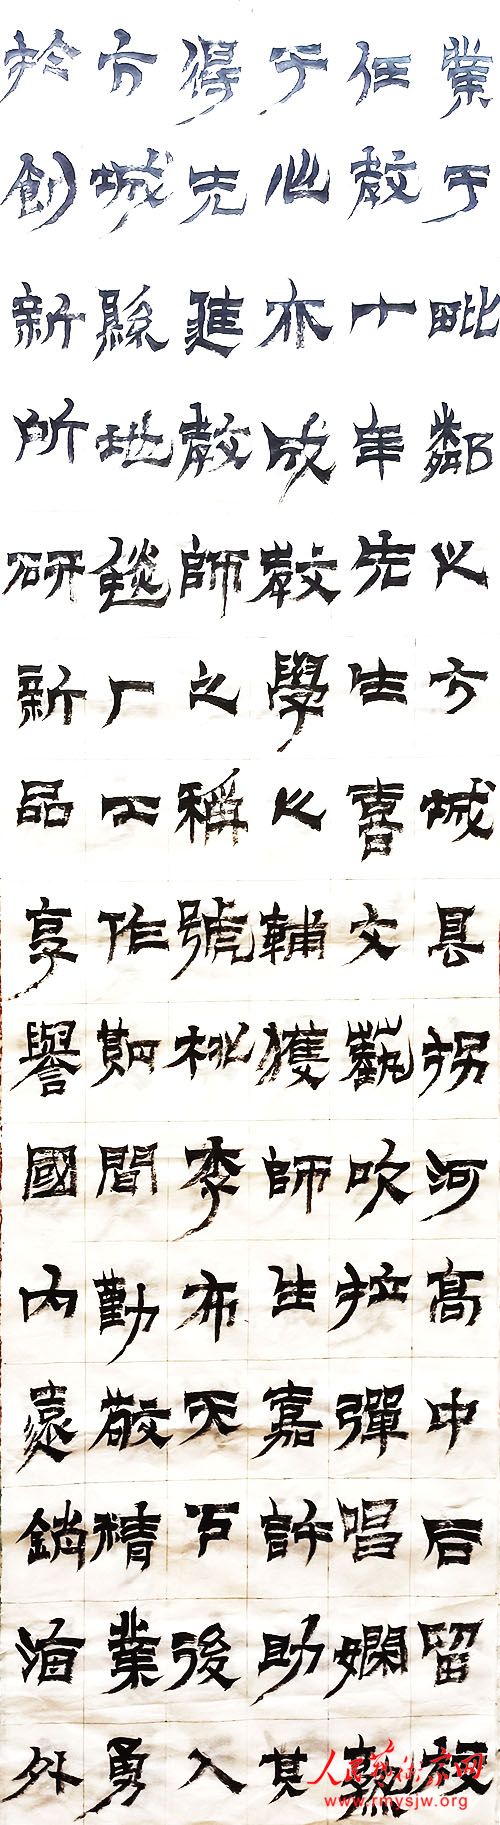 業于毗鄰之方城县拐河高中后留校
任教十年先生喜文藝吹拉彈唱嫻熟
于心亦成教學之輔獲師生嘉許助其
得先進教師之稱號桃李布天下後入
方城縣地毯厂工作期間勤敬精業勇
於創新所研新品享譽國内遠銷海外
人民藝術家网
www.rmysjw.org